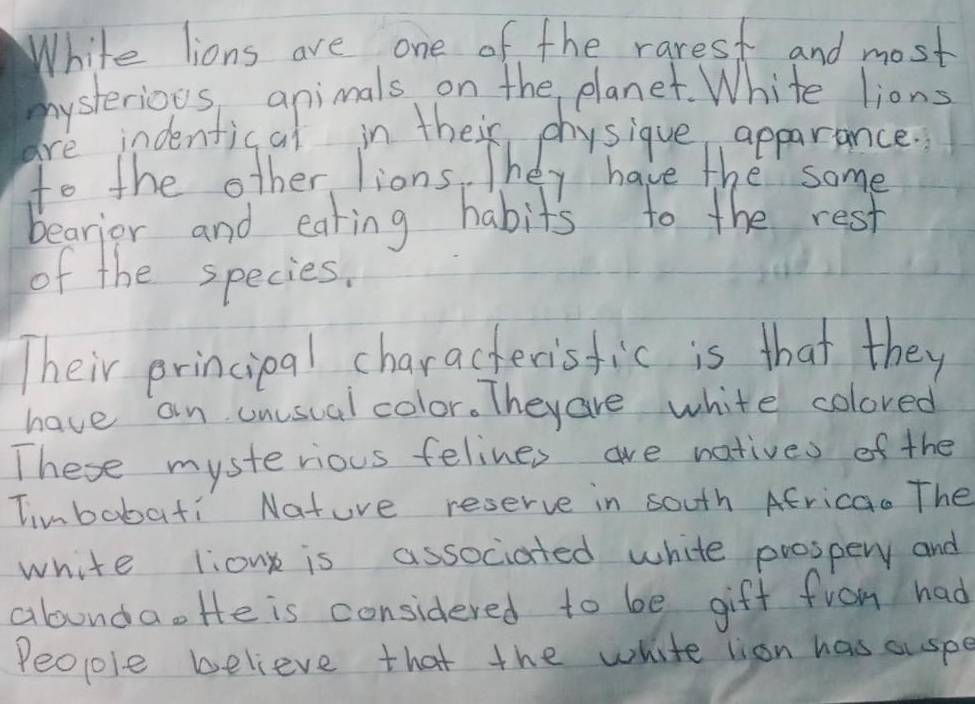 White lions are one of the rarest and most
mysterious animals on the planet. White lions
are indentical in their physique apparance.
to the other lions. They have the same
bearior and eating habits to the rest
of the species.
Their principal characteristic is that they
have an unusual color. They are white colored
These mysterious felines are natives of the
Timbabati Nature reserve in south Africa. The
white lion is associated white prospery and
abunda. He is considered to be gift from had
People believe that the white lion has a supe